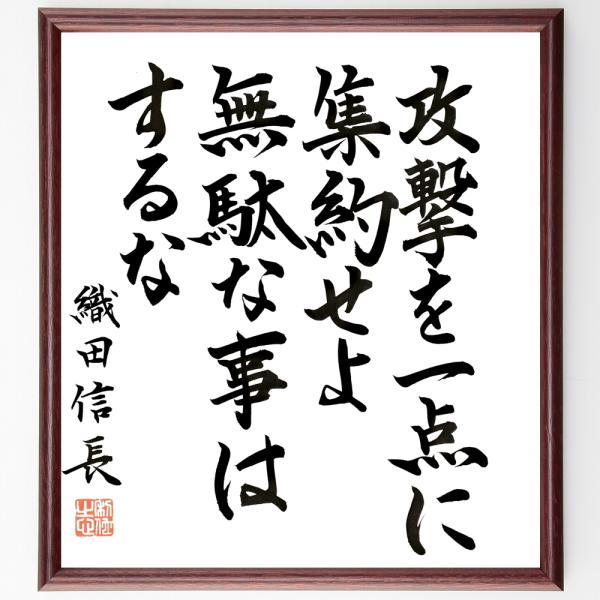 攻撃を一点に
集約せよ
無駄な事は
するな
織田信長